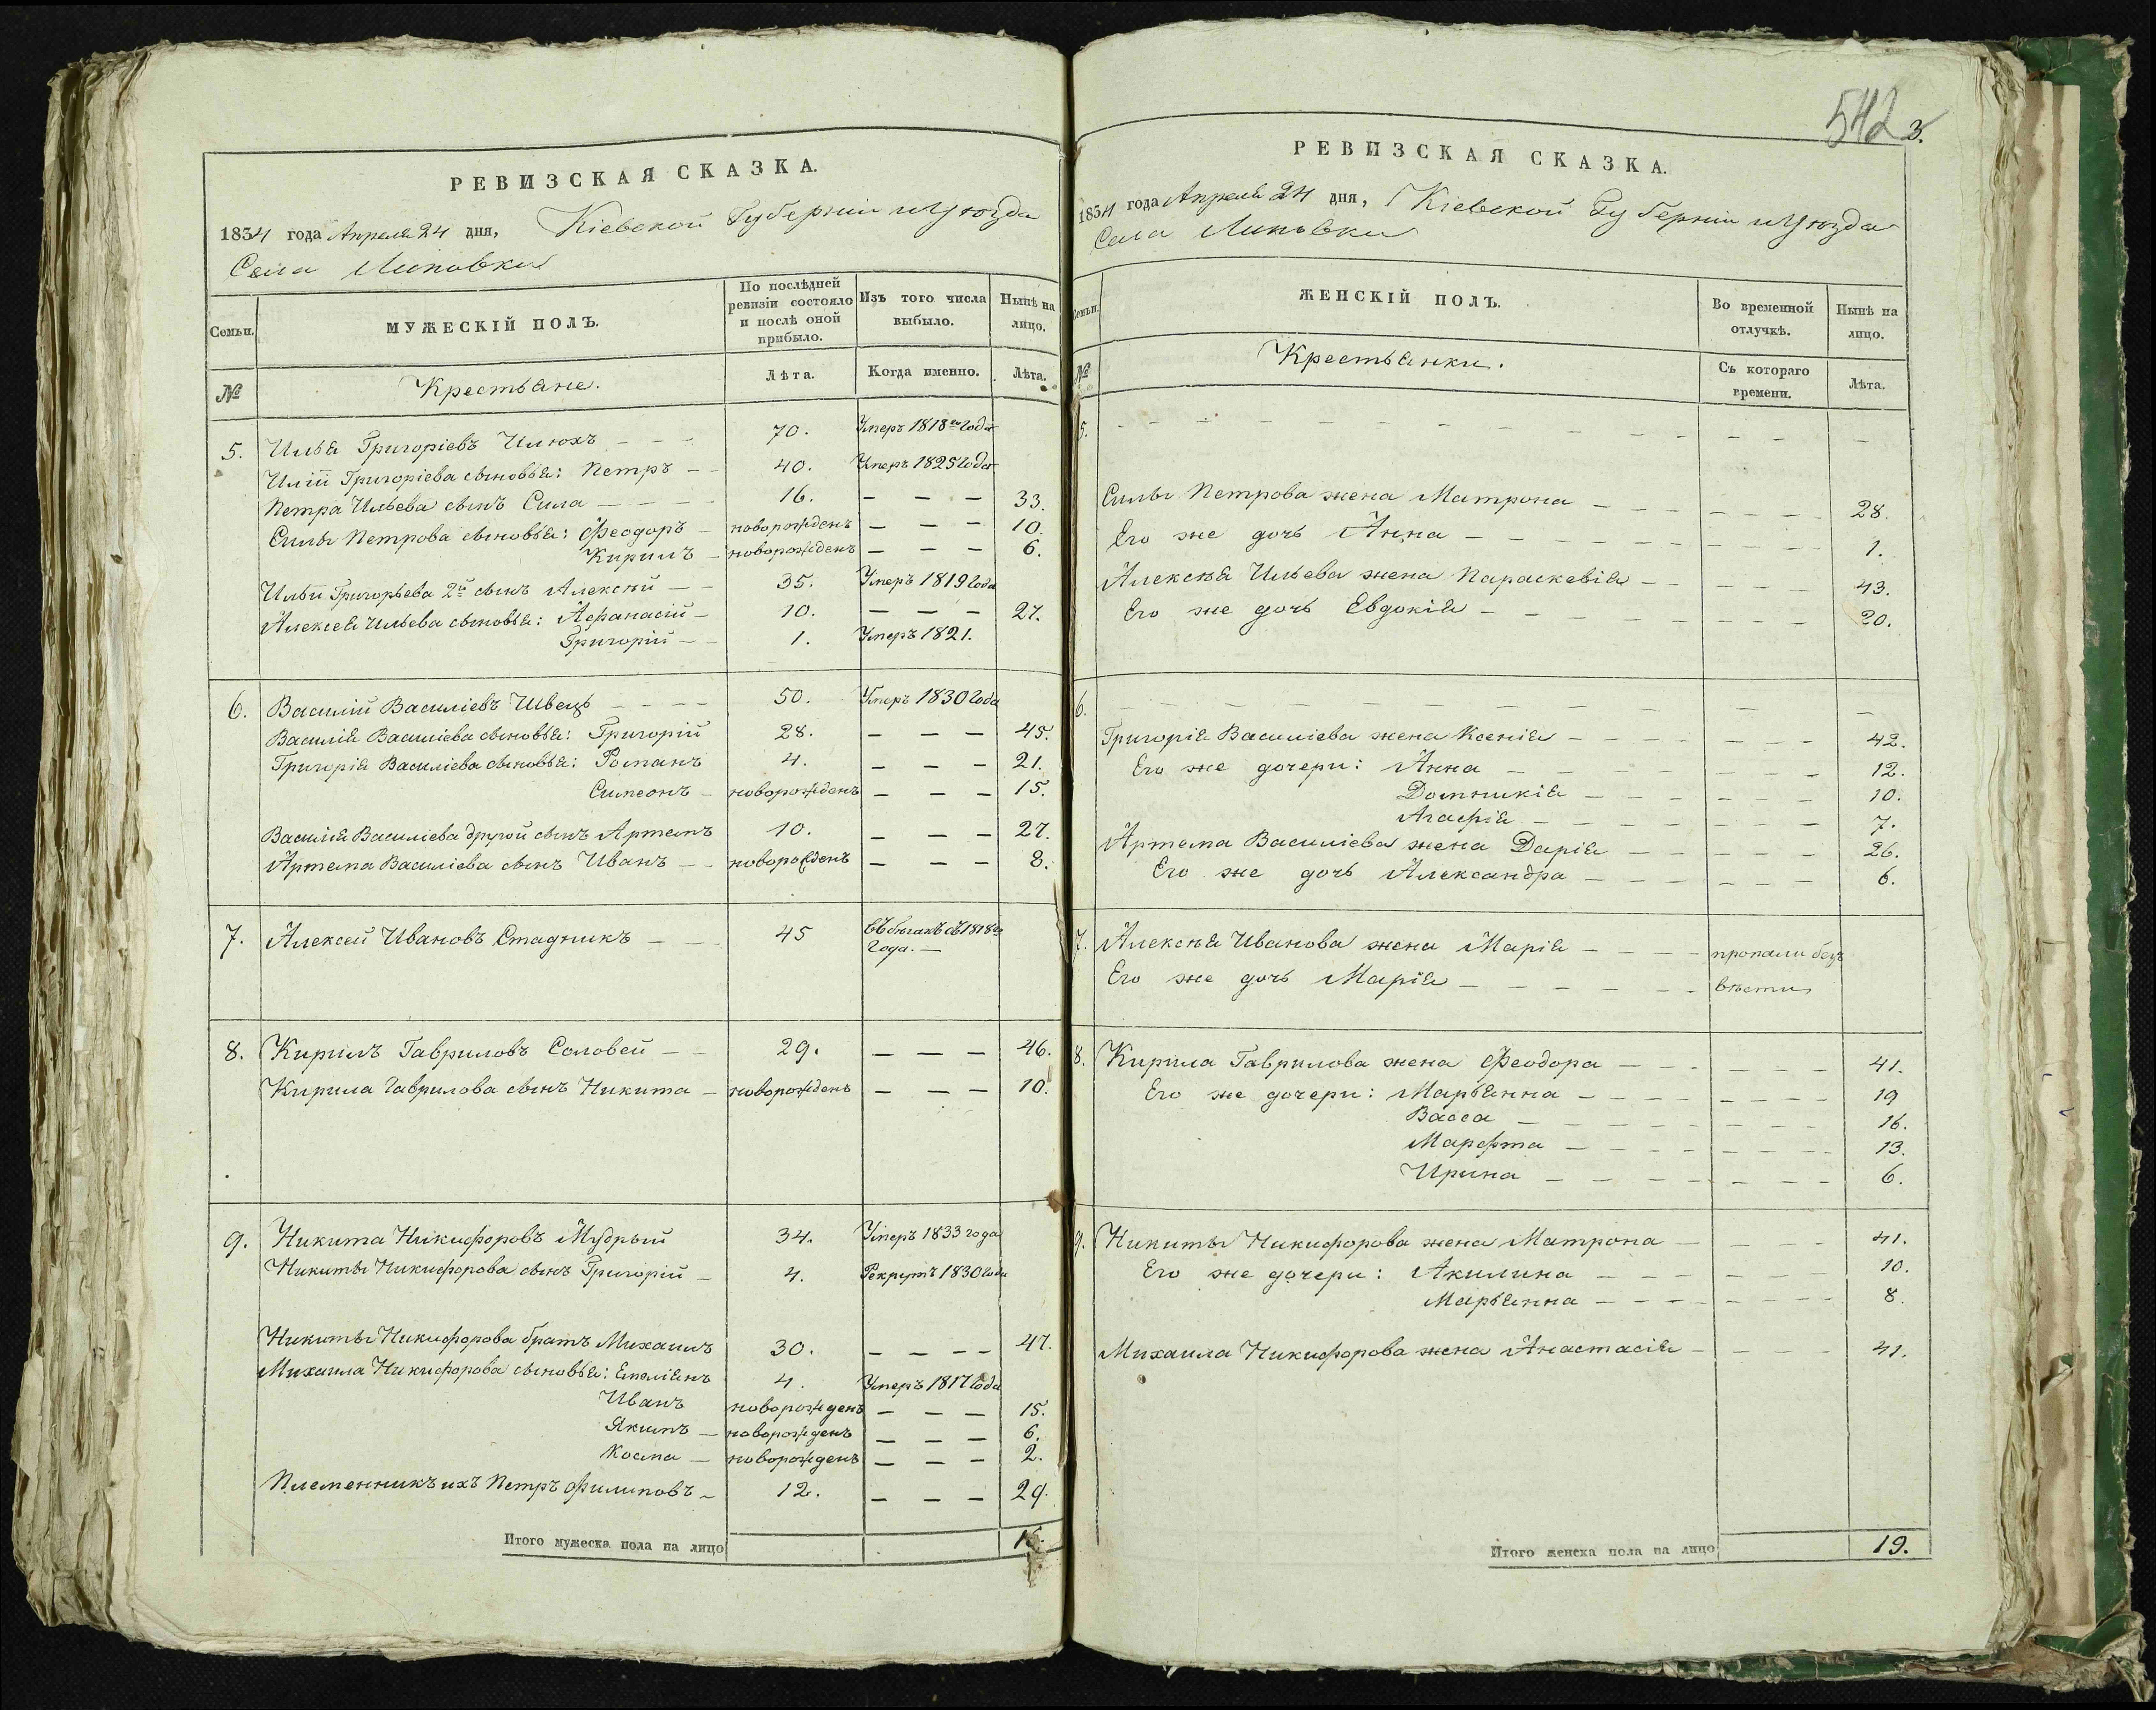 РЕВИЗСКАЯ СКАЗКА.
1834 года Апреля 24 дня, Кіевской Губерніи и Уѣзда
Села Липовки
Семьи.
МУЖЕСКІЙ ПОЛЪ.
По послѣдней ревизіи состояло и послѣ оной прибыло.
Изъ того числа выбыло.
Нынѣ на лицо.
№
Крестьяне.
Лѣта.
Когда именно.
Лѣта.
5. Илья Григоріевъ Илюхъ – – – 70. Умеръ 1818го года
Иліи Григоріева сыновья: Петръ – – 40. Умеръ 1825 года
Петра Ильева сынъ Сила – – – – 16. – – – 33.
Силы Петрова сыновья: Феодоръ – новорожденъ – – – 10.
Кирилъ – новорожденъ – – – 6.
Ильи Григорьева 2й сынъ Алексѣй – – 35. Умеръ 1819 года
Алексея Ильева сыновья: Афанасій – 10. – – – 27.
Григорій – – 1. Умеръ 1821.
6. Василій Василіевъ Швецъ – – – – 50. Умеръ 1830 года
Василія Василіева сыновья: Григорій 28. – – – 45.
Григорія Василіева сыновья: Романъ 4. – – – 21.
Симеонъ – новорожденъ – – – 15.
Василія Василіева другой сынъ Артемъ 10. – – – 27.
Артема Василіева сынъ Иванъ – – новорожденъ – – – 8.
7. Алексей Ивановъ Стадникъ – – – 45 Въ бегахъ съ 1818го
года. –
8. Кирилъ Гавриловъ Соловей – – 29. – – – 46.
Кирила Гаврилова сынъ Никита – новорожденъ – – – 10.
9. Никита Никифоровъ Мудрый 34. Умеръ 1833 года
Никиты Никифорова сынъ Григорій – 4. Рекрутъ 1830 года
Никиты Никифорова братъ Михаилъ 30. – – – – 47.
Михаила Никифорова сыновья: Емеліянъ 4. Умеръ 1817 года
Иванъ новорожденъ – – – 15.
Якимъ – новорожденъ – – – 6.
Косма – новорожденъ – – – 2.
Племенникъ ихъ Петръ Филиповъ – 12. – – – 29.
Итого мужеска пола на лицо
542
3.
РЕВИЗСКАЯ СКАЗКА.
1834 года Апреля 24 дня, Кіевской Губерніи и Уѣзда
Села Липовки
Семьи.
ЖЕНСКІЙ ПОЛЪ.
Во временной отлучкѣ.
Нынѣ на лицо.
№
Крестьянки.
Съ котораго времени.
Лѣта.
5. – – – – – – – – – – – – –
Силы Петрова жена Матрона – – – – – – 28.
Его же дочь Анна – – – – – – – – – 1.
Алексѣя Ильева жена Параскевія – – – – – 43.
Его же дочь Евдокія – – – – – – – – 20.
6. – – – – – – – – – – – – –
Григорія Василіева жена Ксенія – – – – – – – 42.
Его же дочери: Анна – – – – – – – – 12.
Домникія – – – – – – 10.
Агафія – – – – – – – 7.
Артема Василіева жена Дарія – – – – – – 26.
Его же дочь Александра – – – – – – 6.
7. Алексѣя Иванова жена Марія – – – – пропали безъ
Его же дочь Марія – – – – – – вѣсти
8. Кирила Гаврилова жена Феодора – – – – – – 41.
Его же дочери: Марьянна – – – – – – – – 19
Васса – – – – – – – – 16.
Марфта – – – – – – – – 13.
Ирина – – – – – – – – 6.
9. Никиты Никифорова жена Матрона – – – – 41.
Его же дочери: Акилина – – – – – – – 10.
Марьянна – – – – – – – – 8.
Михаила Никифорова жена Анастасія – – – – 41.
Итого женска пола на лицо 19.